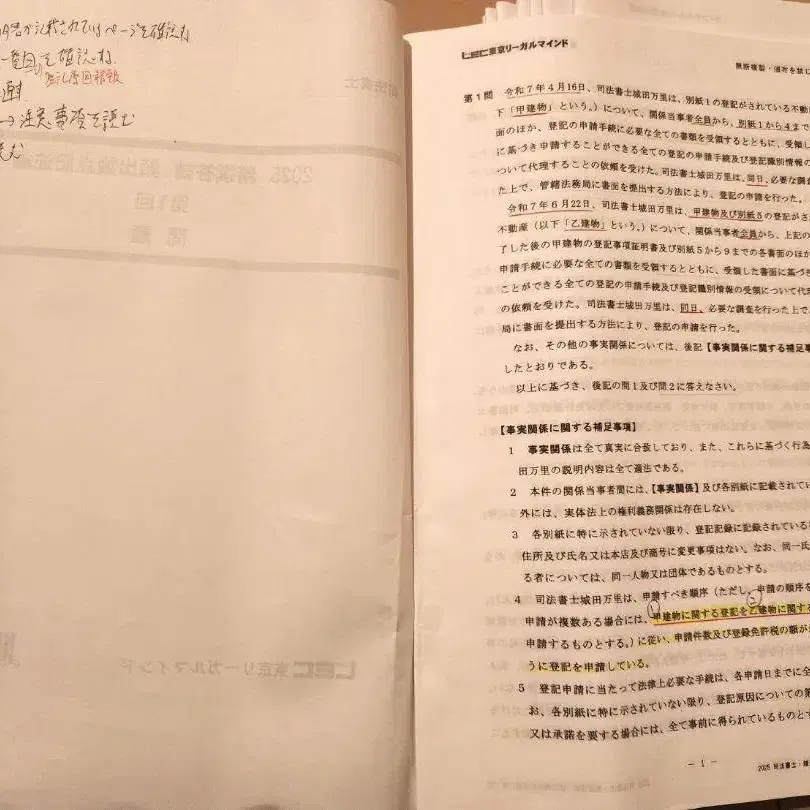 が記載されているページを確認
を確認
登記原因
→注意事項を読む
司法書士
第1回
問題
LEC東京リーガルマインド
LEC東京リーガルマインド
無断複製・頒布を禁じ
第1問 令和7年4月16日、司法書士城田万里は、別紙1の登記がされている不動
下「甲建物」という。)について、関係当事者全員から、別紙1から4まで
面のほか、登記の申請手続に必要な全ての書類を受領するとともに、受領し
に基づき申請することができる全ての登記の申請手続及び登記識別情報の
ついて代理することの依頼を受けた。司法書士城田万里は、同日、必要な調査
た上で、管轄法務局に書面を提出する方法により、登記の申請を行った。
令和7年6月22日、司法書士城田万里は、甲建物及び別紙5の登記がさ
不動産(以下「乙建物」という。)について、関係当事者全員から、上記の
了した後の甲建物の登記事項証明書及び別紙5から9までの各書面のほか
申請手続に必要な全ての書類を受領するとともに、受領した書面に基づき
ことができる全ての登記の申請手続及び登記識別情報の受領について代理
の依頼を受けた。司法書士城田万里は、同日、必要な調査を行った上で
局に書面を提出する方法により、登記の申請を行った。
なお、その他の事実関係については、後記【事実関係に関する補足事
したとおりである。
以上に基づき、後記の問1及び問2に答えなさい。
【事実関係に関する補足事項】
1 事実関係は全て真実に合致しており、また、これらに基づく行為
田万里の説明内容は全て適法である。
2 本件の関係当事者間には、【事実関係】及び各別紙に記載されてい
外には、実体法上の権利義務関係は存在しない。
3 各別紙に特に示されていない限り、登記記録に記録されている
住所及び氏名又は本店及び商号に変更事項はない。なお、同一氏
る者については、同一人物又は団体であるものとする。
4 司法書士城田万里は、申請すべき順序(ただし、申請の順序を
申請が複数ある場合には、甲建物に関する登記を乙建物に関する
申請するものとする。)に従い、申請件数及び登録免許税の額が
うに登記を申請している。
5 登記申請に当たって法律上必要な手続は、各申請日までに全
お、各別紙に特に示されていない限り、登記原因についての第
又は承諾を要する場合には、全て事前に得られているものと
- 1 -
2025 司法書士・